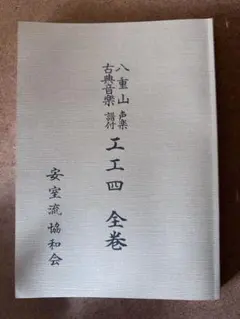 八重山古典音楽
声楽譜付
工工四 全巻
安室流協和会